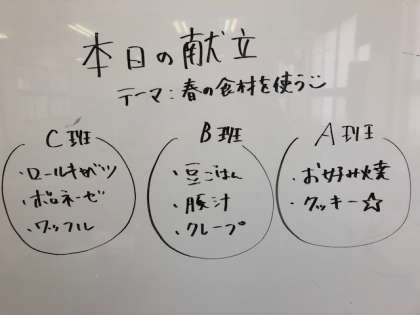 本日の献立
テーマ:春の食材を使う
C班
・ロールキャベツ
・ボロネーゼ
・ワッフル
B班
・豆ごはん
・豚汁
・クレープ
A班
・お好み焼
・クッキー☆